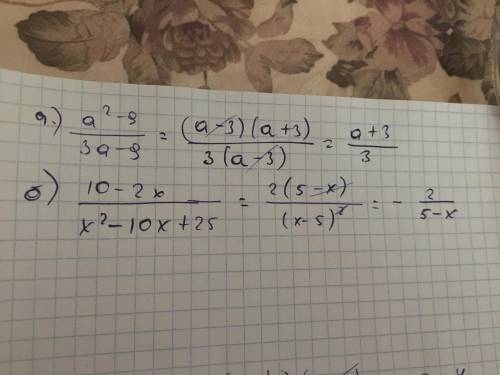 а.) (a²-9)/(3a-9) = ((a-3)(a+3))/(3(a-3)) = (a+3)/3
б) (10-2x)/(x²-10x+25) = (2(5-x))/((x-5)²) = - 2/(5-x)